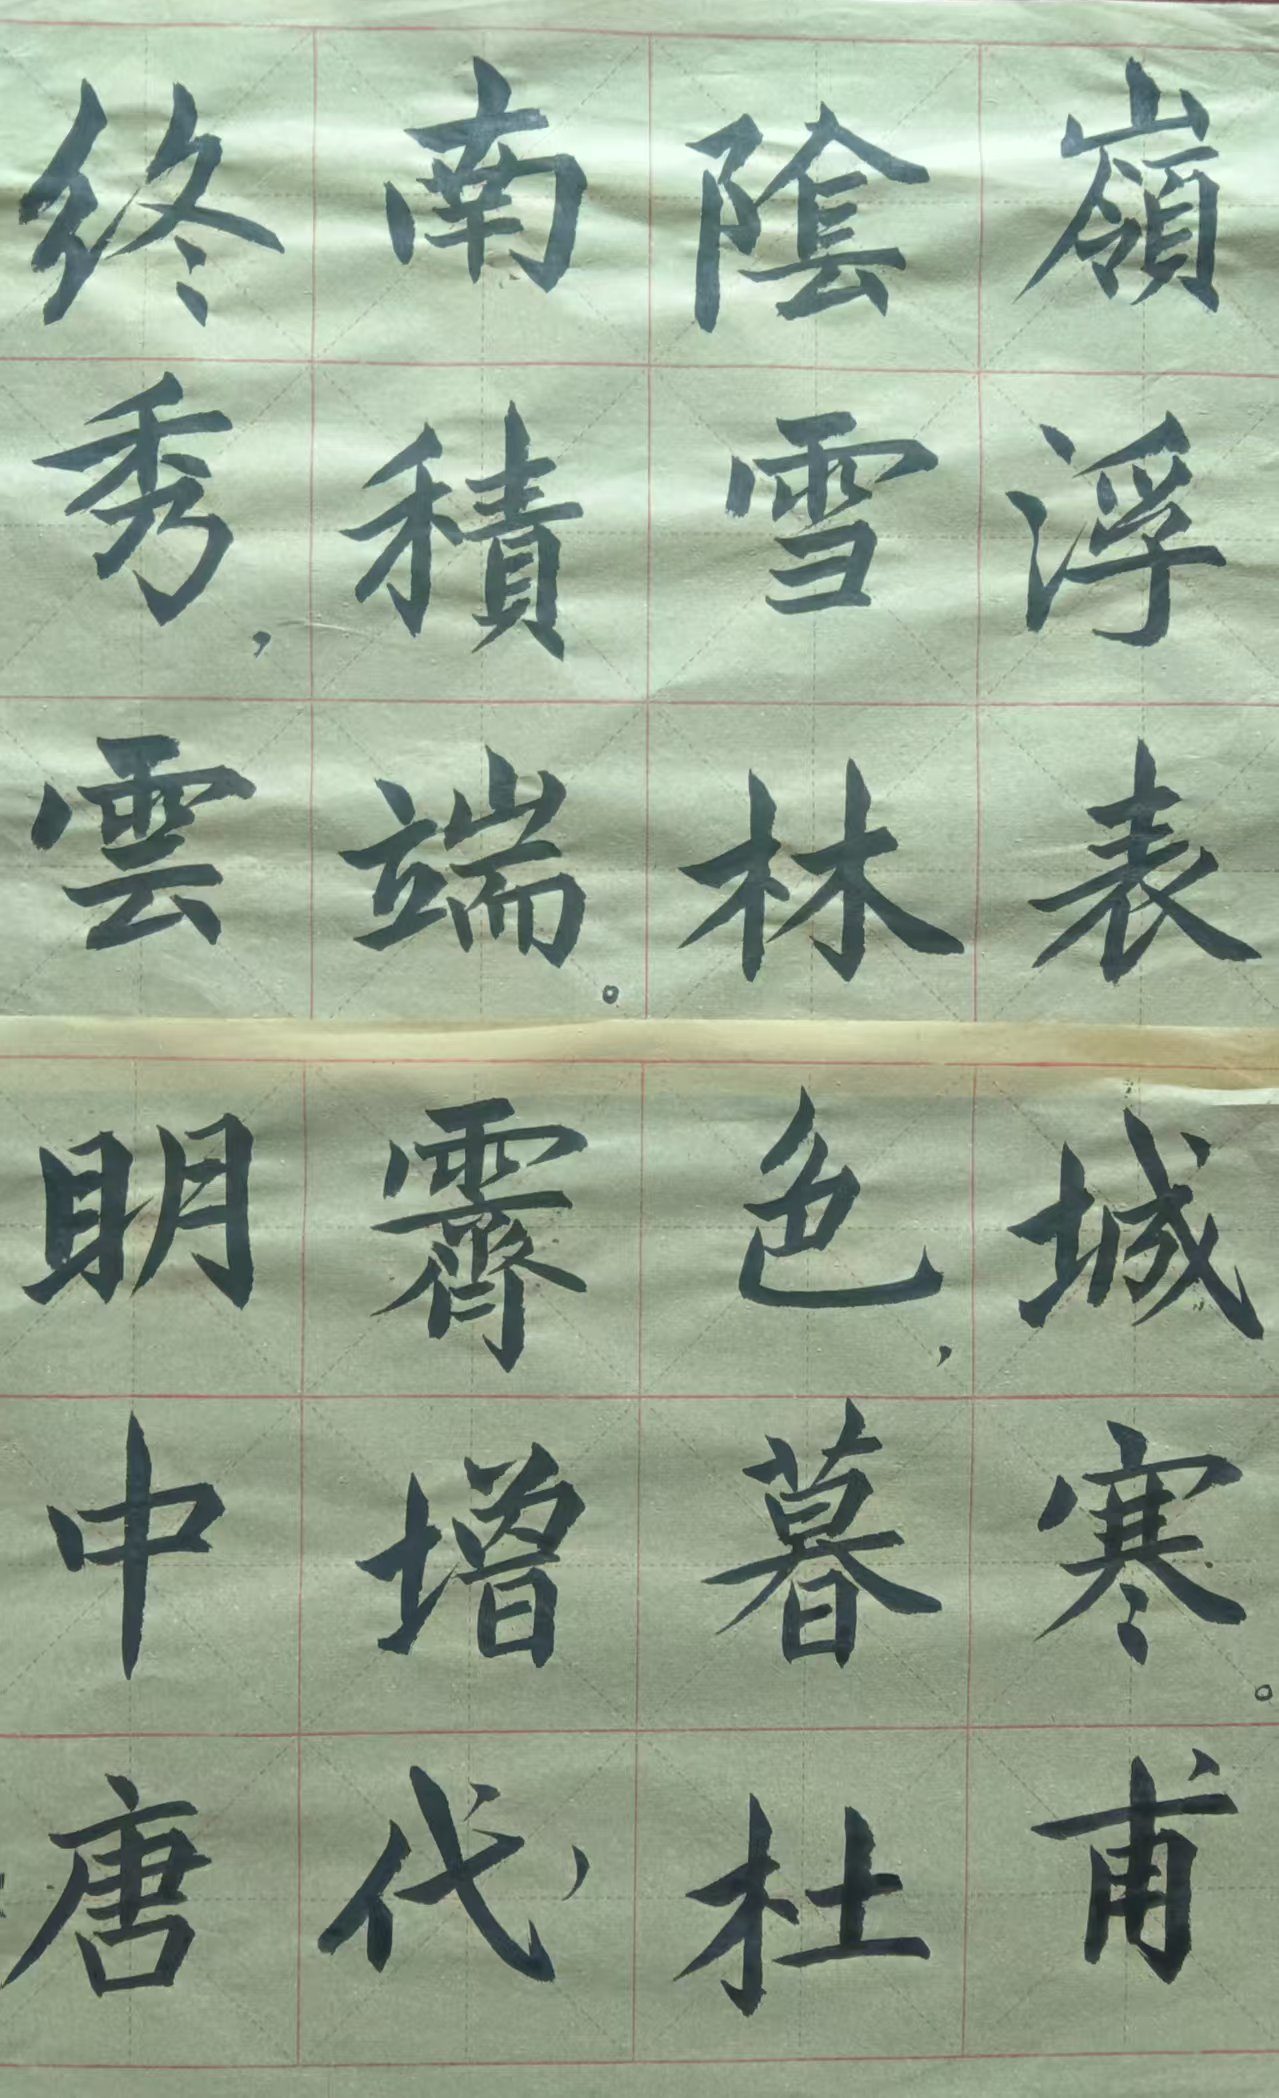 终南陰嶺
秀，積雪浮
雲端。林表
明霽色，城
中增暮寒。
唐代，杜甫